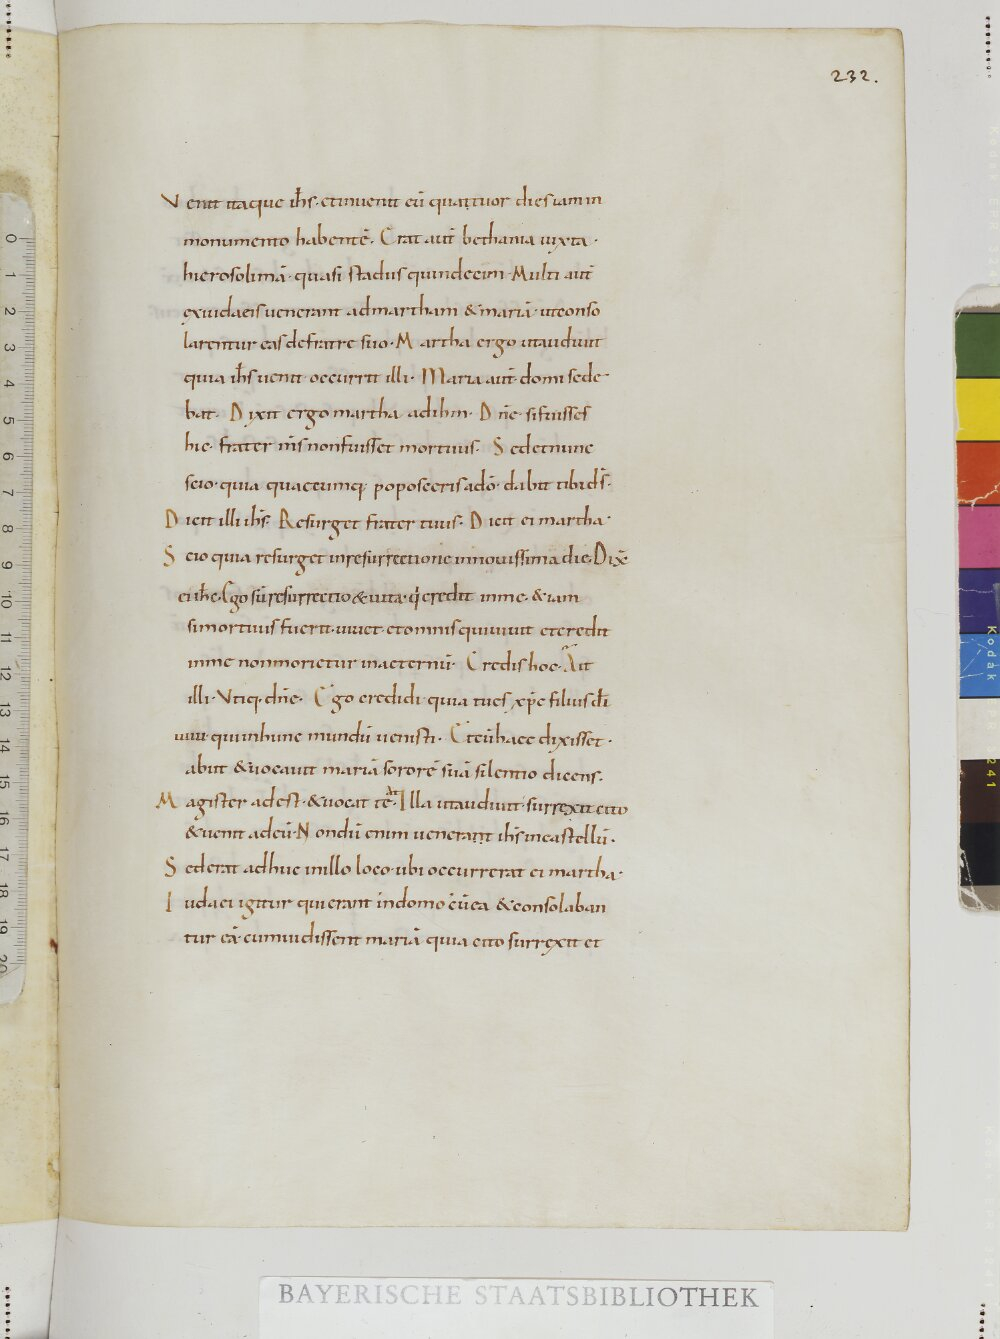 232.
Venit itaque ihs. et inuenit eū quattuor dies iam in
monumento habentē. Erat autē bethania iuxta.
hierosolimā. quasi stadiis quindecim. Multi autē
ex iudaeis uenerant ad martham & mariā. ut conso
larentur eas de fratre suo. Martha ergo ut audiuit
quia ihs uenit occurrit illi. Maria autē domi sede
bat. Dixit ergo martha ad ihm. Dñe. si fuisses
hic. frater ms non fuisset mortuus. Sed et nunc
scio. quia quaecumq; poposceris a dō. dabit tibi ds.
Dicit illi ihs. Resurget frater tuus. Dicit ei martha.
Scio quia resurget in resurrectione in nouissima die. Dix̄
ei ihc. Ego sū resurrectio & uita. q̇ credit in me. & iam
si mortuus fuerit. uiuet. et omnis qui uiuit et credit
in me non morietur in aeternū. Credis hoc. Ait
illi. Vtiq. dñe. Ego credidi. quia tu es xp̄c filius di
uiui. qui in hunc mundū uenisti. Et cū haec dixisset.
abiit & uocauit mariā sororē suā silentio dicens.
Magister adest. & uocat tē. Illa ut audiuit. surrexit cito
& uenit ad eū. Nondū enim uenerant ihs in castellū.
Sed erat adhuc in illo loco. ubi occurrerat ei martha.
Iudaei igitur qui erant in domo cū ea & consolaban
tur eā. cum uidissent mariā quia cito surrexit et
BAYERISCHE STAATSBIBLIOTHEK
0
1
2
3
4
5
6
7
8
9
10
11
12
13
14
15
16
17
18
19
20
Kodak